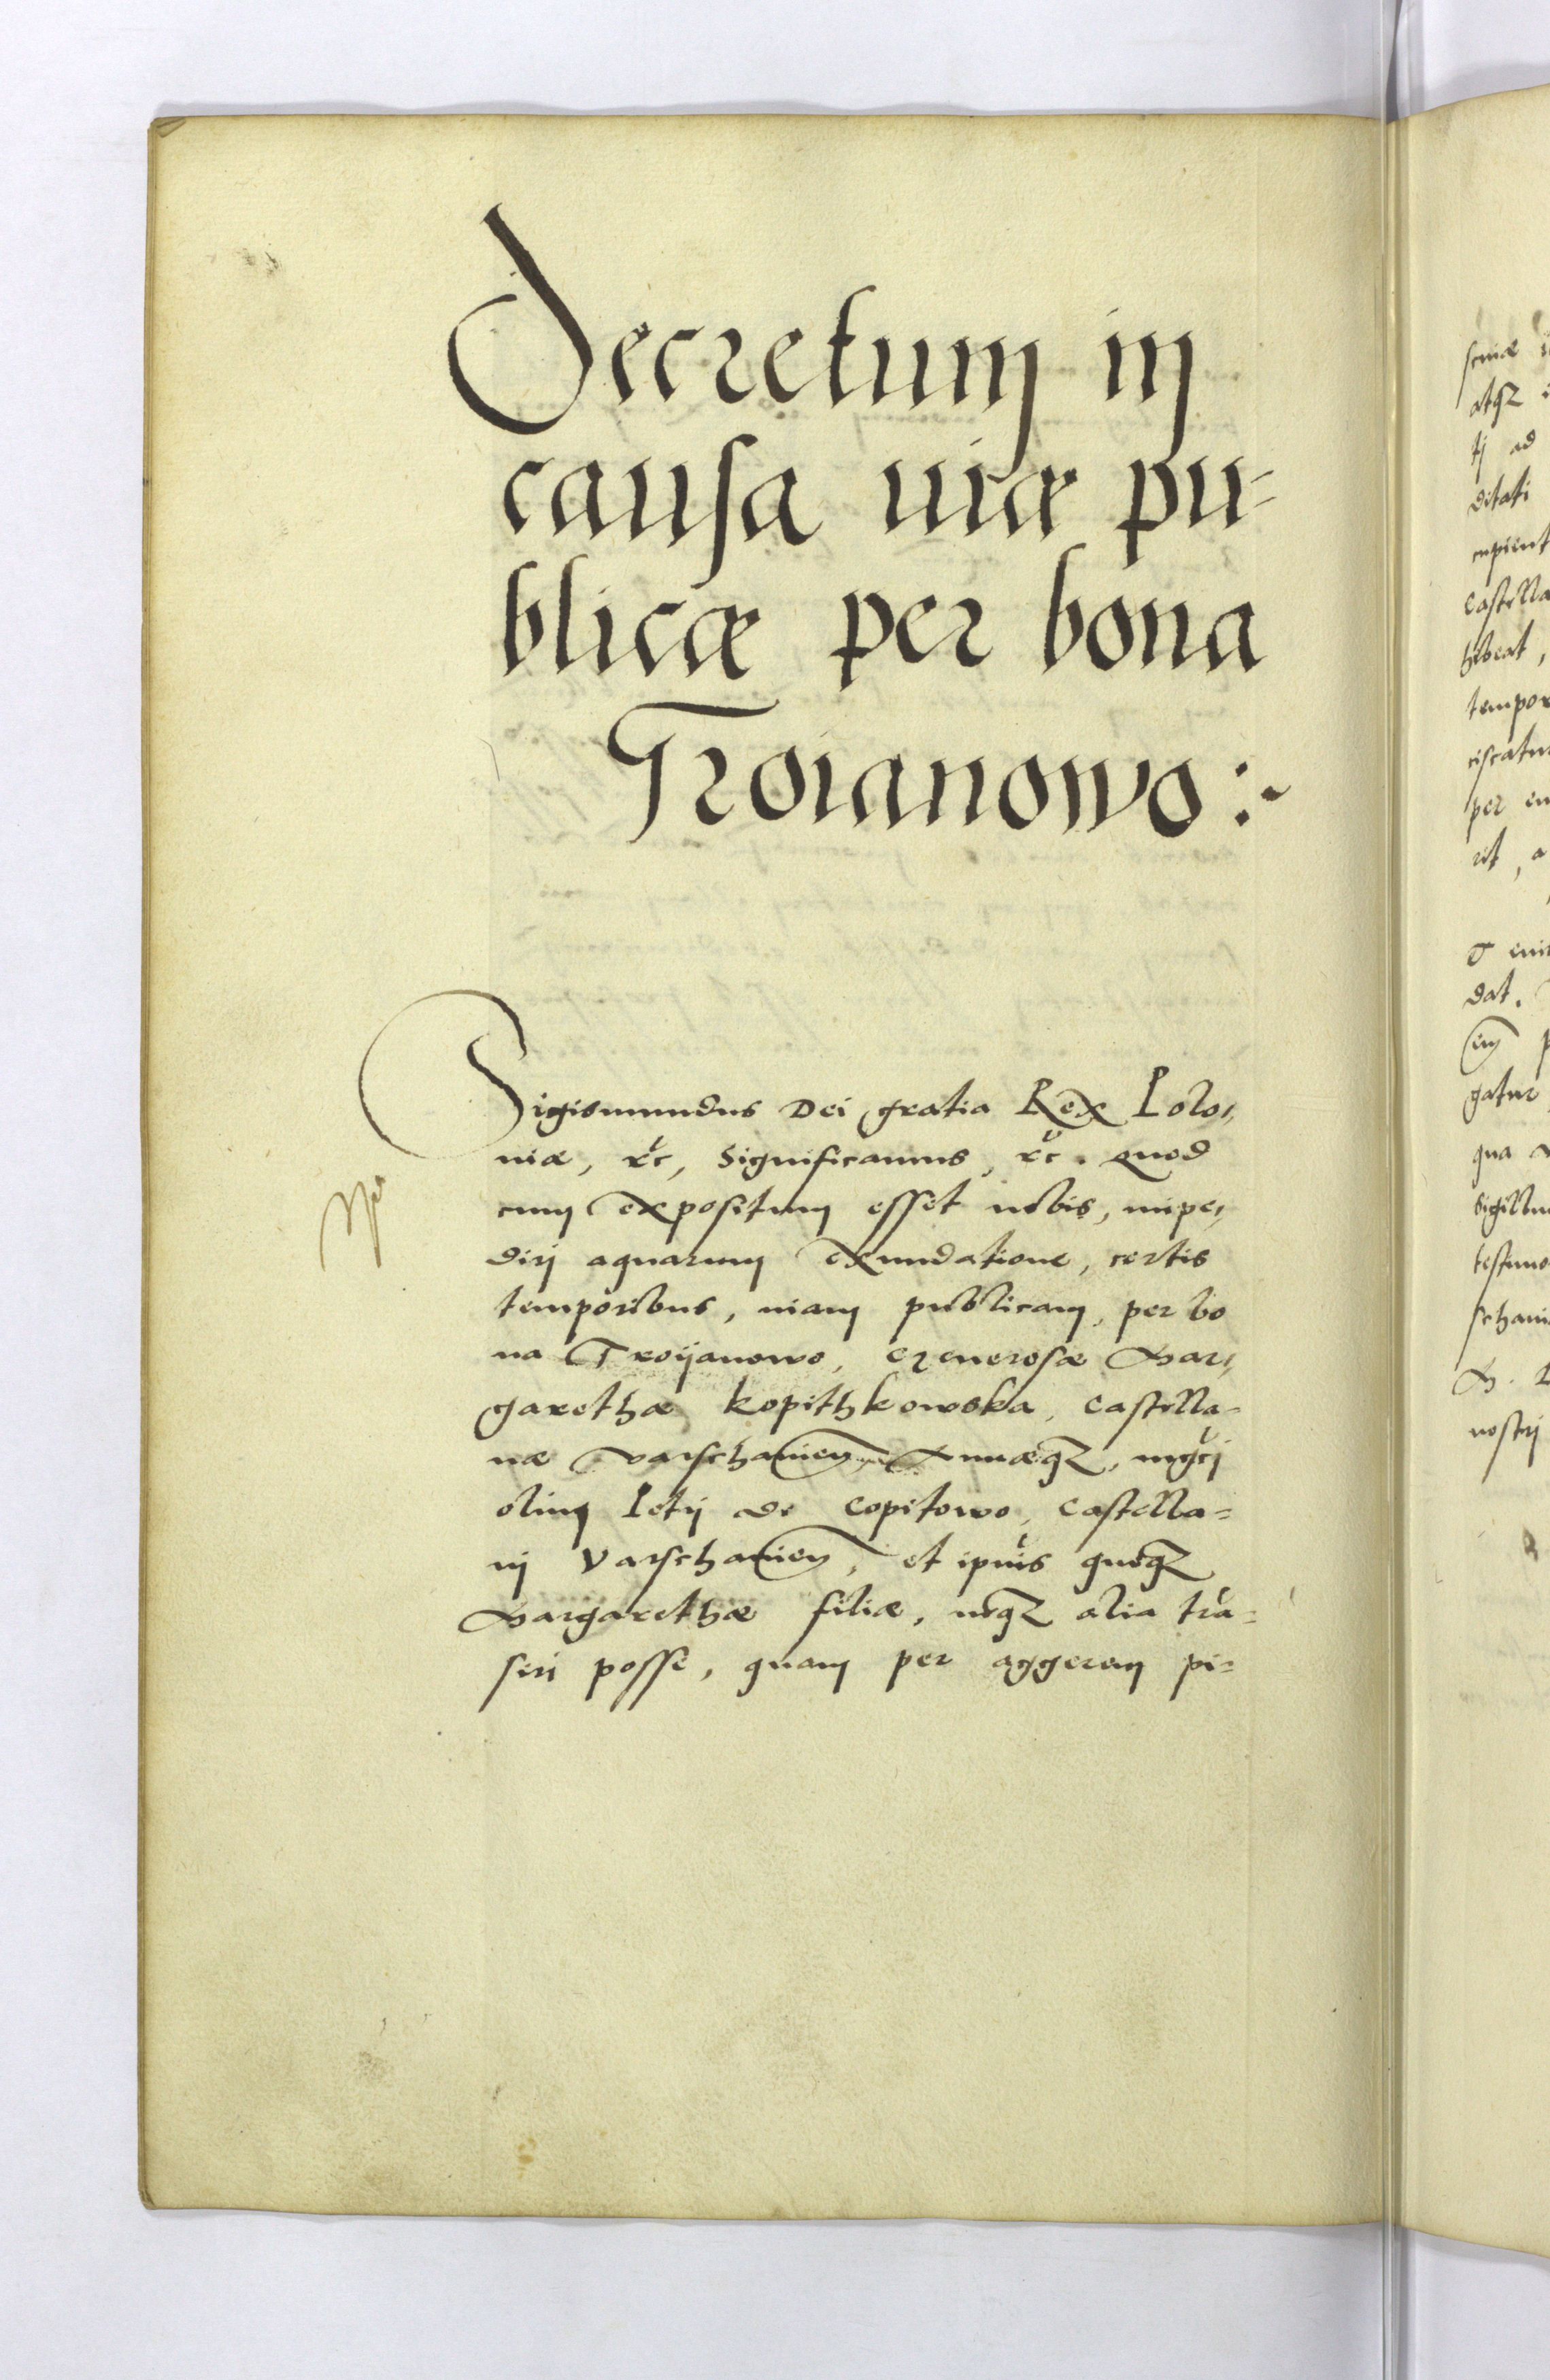 Decretum in
causa uiæ pu-
blicæ per bona
Troianowo :~
Sigismundus Dei gratia Rex Polo,,
niæ, etc, Significamus, etc. Quod
cum expositum esset nobis, impe,,
diri aquarum exundatione, certis
temporibus, uiam publicam, per bo
na Troijanowo, Generosæ Mar,,
garethæ Kopithkowska, Castella-
næ Varschauien, Annæqz, mgci
olim Petri de Copitowo, Castella-
ni Varschauien, et ipius quoqz
Margarethæ filiæ, neqz alia tra-
siri posse, quam per aggerem pi-
seinæ
atqz
ti ad
ditati
cupient
Castella
hibeat,
tempor
ciscatur
per eu
rit, a
dat.
gatur
qua
Sigillum
testimo
schaui
nostri